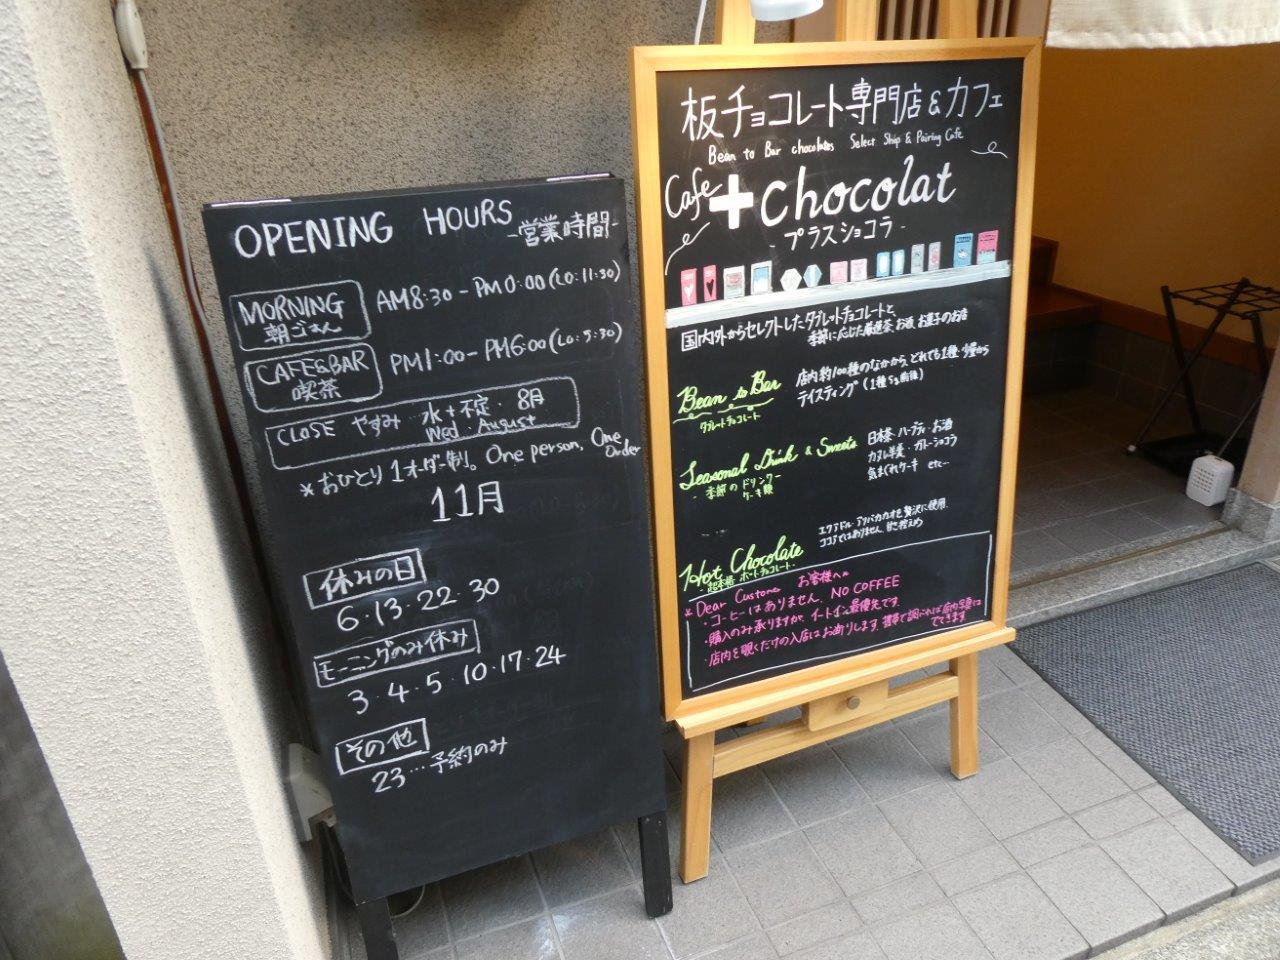 OPENING HOURS
-営業時間-
MORNING
朝ごはん
AM8:30-PM0:00(LO:11:30)
CAFE&BAR
喫茶
PM1:00-PM6:00(LO:5:30)
CLOSE やすみ 水+不定・8月
Wed・August
*おひとり1オーダー制。One person, One Order
11月
休みの日
6・13・22・30
モーニングのみ休み
3・4・5・10・17・24
その他
23…予約のみ
板チョコレート専門店&カフェ
Bean to Bar chocolates Select Ship & Pairing Cafe
Cafe +chocolat
-プラスショコラ-
国内外からセレクトしたタブレットチョコレートと、
季節に応じた厳選茶・お酒・お菓子のお店
Bean to Bar
タブレートチョコレート
店内約100種のなかから、どれでも1種・少量から
テイスティング(1種5g前後)
Seasonal Drink & Sweets
-季節のドリンク-
ケーキ類
日本茶・ハーブティ・お酒
カヌレ羊羹・ガトーショコラ
気まぐれケーキ etc…
Hot Chocolate
-超本格 ホットチョコレート-
エクアドル・アリバカカオを贅沢に使用
ココアではありません、甘さ控えめ
*Dear Custome お客様へ
・コーヒーはありません、NO COFFEE
・購入のみ承りますが、イートイン最優先です
・店内を覗くだけの入店はお断りします。